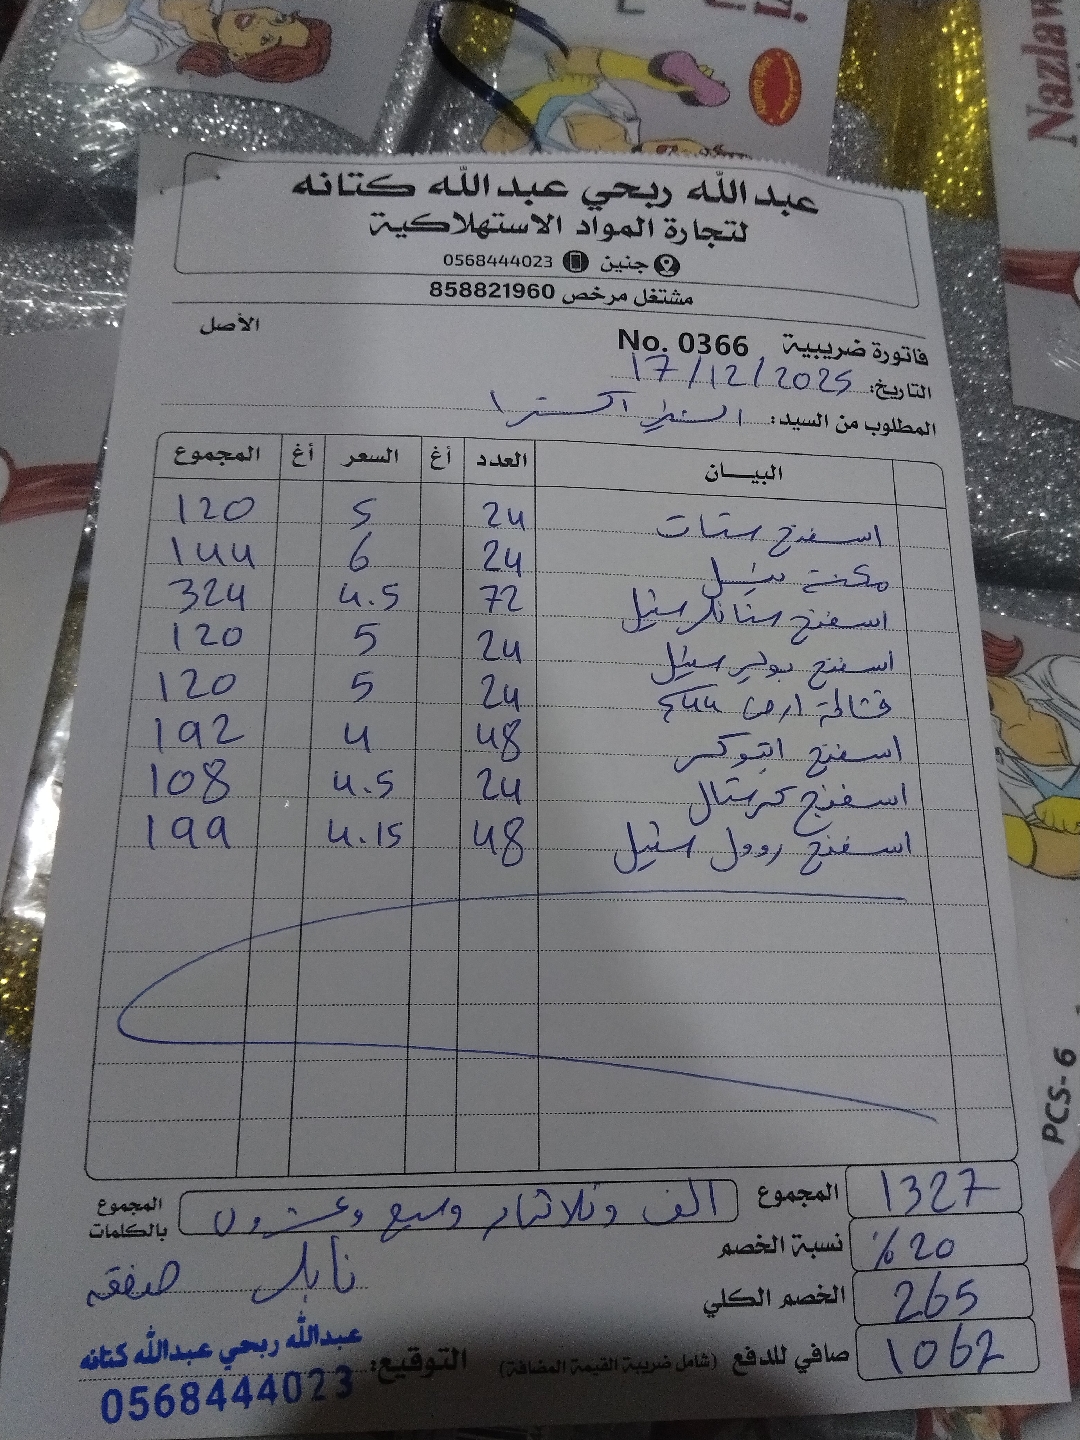 Nazlaw
High Quality
عبدالله ربحي عبدالله كتانه
لتجارة المواد الاستهلاكية
جنين 0568444023
مشتغل مرخص 858821960
الأصل
فاتورة ضريبية No. 0366
التاريخ: 17/12/2025
المطلوب من السيد: اكسترا
البيـــان العدد أغ السعر أغ المجموع
اسفنج ستات 24 5 120
مكنسة 24 6 144
اسفنج ستانلس ستيل 72 4.5 324
اسفنج بولير ستيل 24 5 120
قشاطة ارض 24 5 120
اسفنج 48 4 192
اسفنج كرستال 24 4.5 108
اسفنج روول ستيل 48 4.15 199
المجموع 1327
المجموع بالكلمات الف وثلاثمائة وسبع وعشرون
نسبة الخصم %20
الخصم الكلي 265
صافي للدفع (شامل ضريبة القيمة المضافة) 1062
التوقيع:
عبدالله ربحي عبدالله كتانه
0568444023
PCS- 6